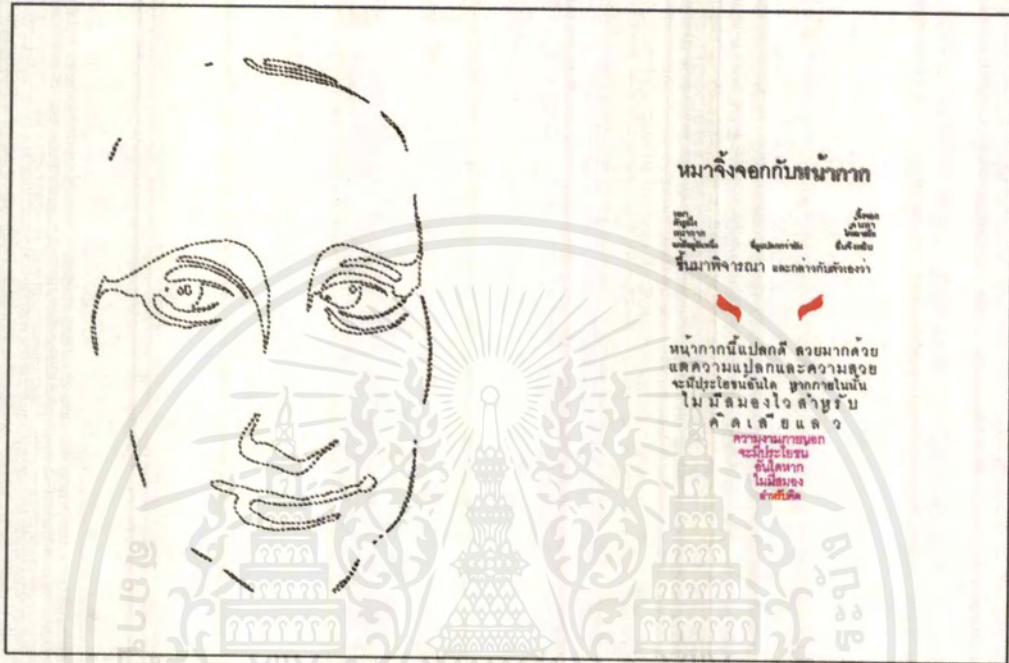 หมาจิ้งจอกกับหน้ากาก
ขึ้นมาพิจารณา และกล่าวกับตัวเองว่า
หน้ากากนี้แปลกดี สวยมากด้วย
แต่ความแปลกและความสวย
จะมีประโยชน์อันใด หากภายในนั้น
ไม่มีสมองไว้สำหรับ
คิดเสียแล้ว
ความงามภายนอก
จะมีประโยชน์
อันใดหาก
ไม่มีสมอง
สำหรับคิด